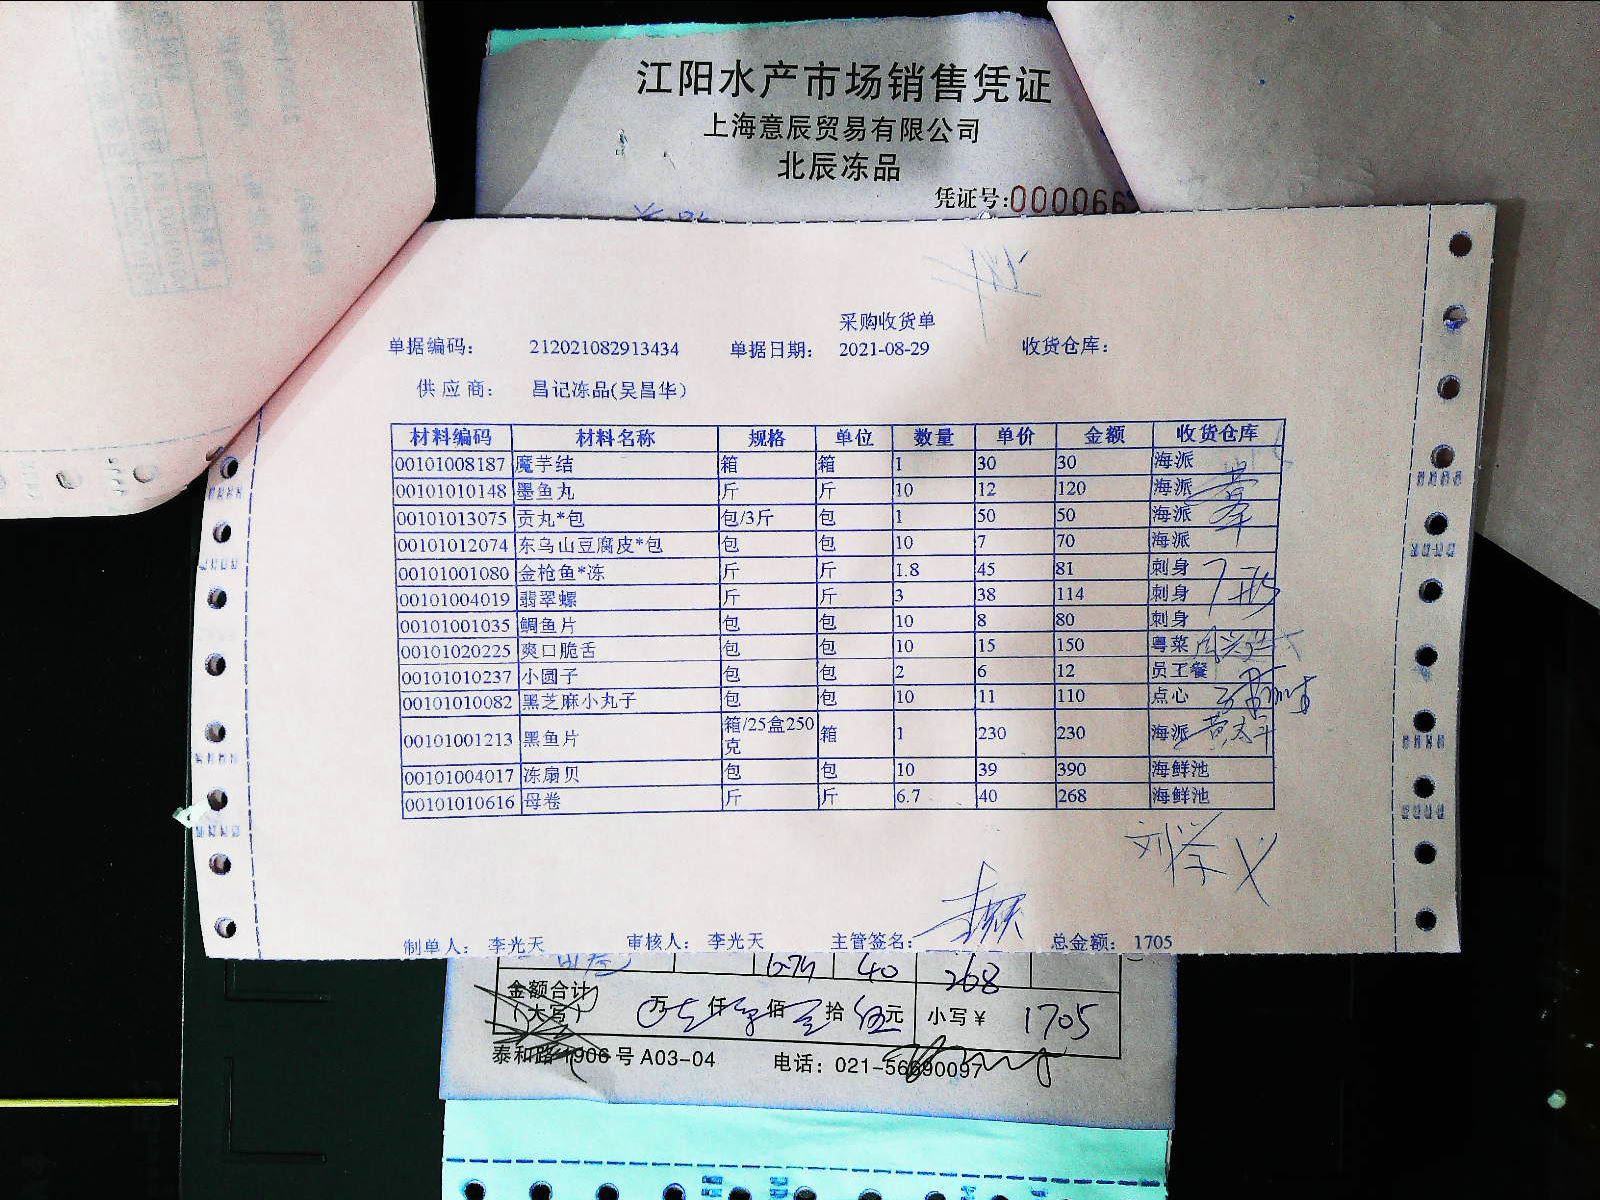 江阳水产市场销售凭证
上海意辰贸易有限公司
北辰冻品
凭证号:0000066
采购收货单
单据编码： 212021082913434 单据日期： 2021-08-29 收货仓库：
供应商： 昌记冻品(吴昌华)
材料编码 材料名称 规格 单位 数量 单价 金额 收货仓库
00101008187 魔芋结 箱 箱 1 30 30 海派
00101010148 墨鱼丸 斤 斤 10 12 120 海派
00101013075 贡丸*包 包/3斤 包 1 50 50 海派
00101012074 东乌山豆腐皮*包 包 包 10 7 70 海派
00101001080 金枪鱼*冻 斤 斤 1.8 45 81 刺身
00101004019 翡翠螺 斤 斤 3 38 114 刺身
00101001035 鲷鱼片 包 包 10 8 80 刺身
00101020225 爽口脆舌 包 包 10 15 150 粤菜
00101010237 小圆子 包 包 2 6 12 员工餐
00101010082 黑芝麻小丸子 包 包 10 11 110 点心
00101001213 黑鱼片 箱/25盒250克 箱 1 230 230 海派
00101004017 冻扇贝 包 包 10 39 390 海鲜池
00101010616 母卷 斤 斤 6.7 40 268 海鲜池
制单人： 李光天 审核人： 李光天 主管签名： 总金额： 1705
40 268
金额合计
（大写） 万 仟 佰 拾 伍元 小写￥ 1705
泰和路1906号A03-04 电话：021-56690097